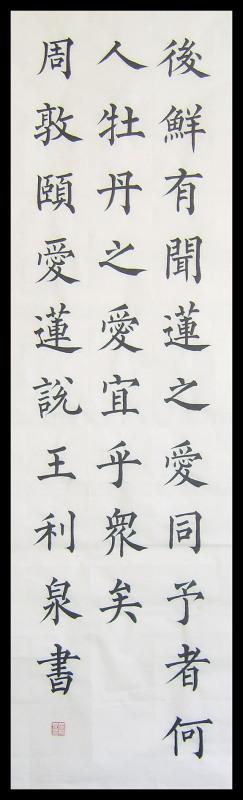 後鮮有聞蓮之愛同予者何
人牡丹之愛宜乎眾矣
周敦頤愛蓮說王利泉書